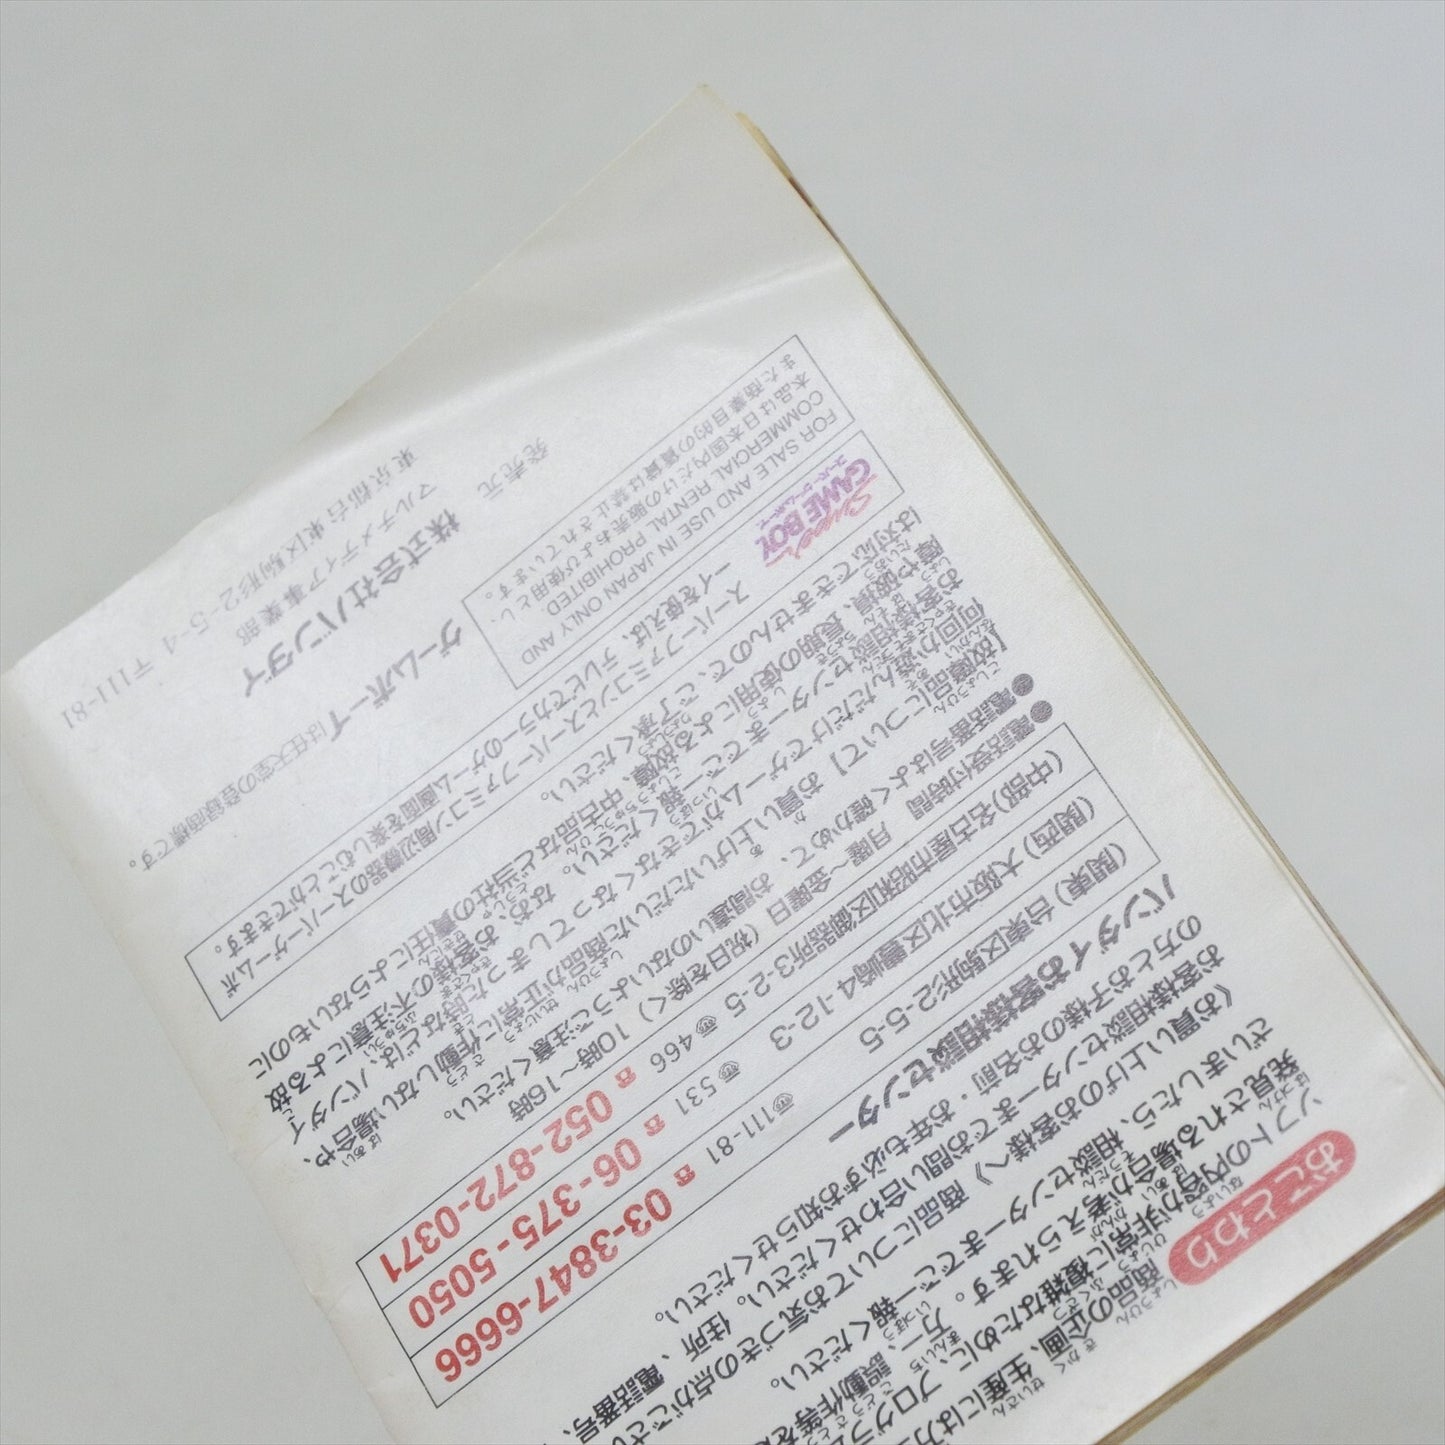 おことわり
商品の企画、生産には万
ソフトの内容が非常に複雑なために、プログラ
発見される場合が考えられます。万一、誤動作等を
ざいましたら、相談センターまでご一報ください。
《お買い上げのお客様へ》 商品についてお気づきの点がござい
お客様相談センターまでお問い合わせください。住所、電話番号、
の方とお子様のお名前・お年も必ずお知らせください。
バンダイお客様相談センター
(関東) 台東区駒形2-5-5 〒111-81 ☎ 03-3847-6666
(関西) 大阪市北区豊崎4-12-3 〒531 ☎ 06-375-5050
(中部) 名古屋市昭和区御器所3-2-5 〒466 ☎ 052-872-0371
●電話受付時間 月曜〜金曜日 (祝日を除く) 10時〜16時
●電話番号はよく確かめて、お間違いのないようご注意ください。
【故障品について】 お買い上げいただいた商品が正常に作動しない場合や、
何回か遊んだだけでゲームができなくなってしまった時などは、バンダイ
お客様相談センターまでご一報ください。なお、お客様の不注意による故
障や破損、長期の使用による故障、中古品など当社の責任によらないものに
は対応できませんので、ご了承ください。
Super GAME BOY
スーパーゲームボーイ
スーパーファミコンとスーパーファミコン周辺機器のスーパーゲームボ
ーイを使えば、テレビでカラーのゲーム画面を楽しむことができます。
FOR SALE AND USE IN JAPAN ONLY AND
COMMERCIAL RENTAL PROHIBITED.
本品は日本国内だけの販売および使用とし、
また商業目的の賃貸は禁止されています。
ゲームボーイは任天堂の登録商標です。
発売元
株式会社バンダイ
マルチメディア事業部
東京都台東区駒形2-5-4 〒111-81